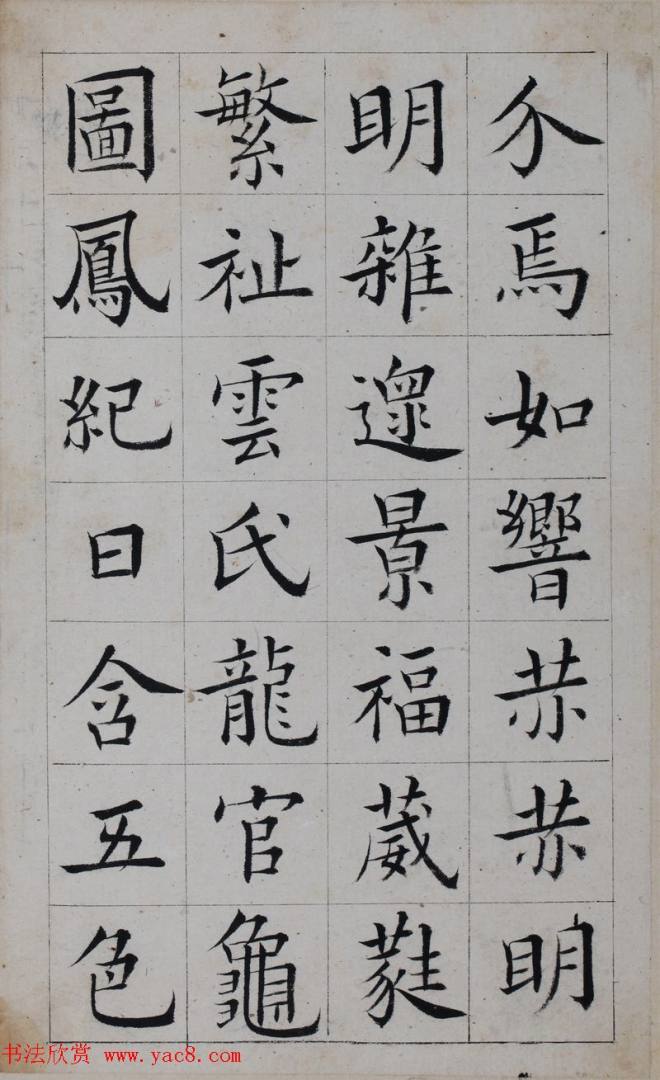 介焉如響恭恭明
明雜遝景福葳蕤
繁祉雲氏龍官龜
圖鳳紀日含五色
书法欣赏 www.yac8.com